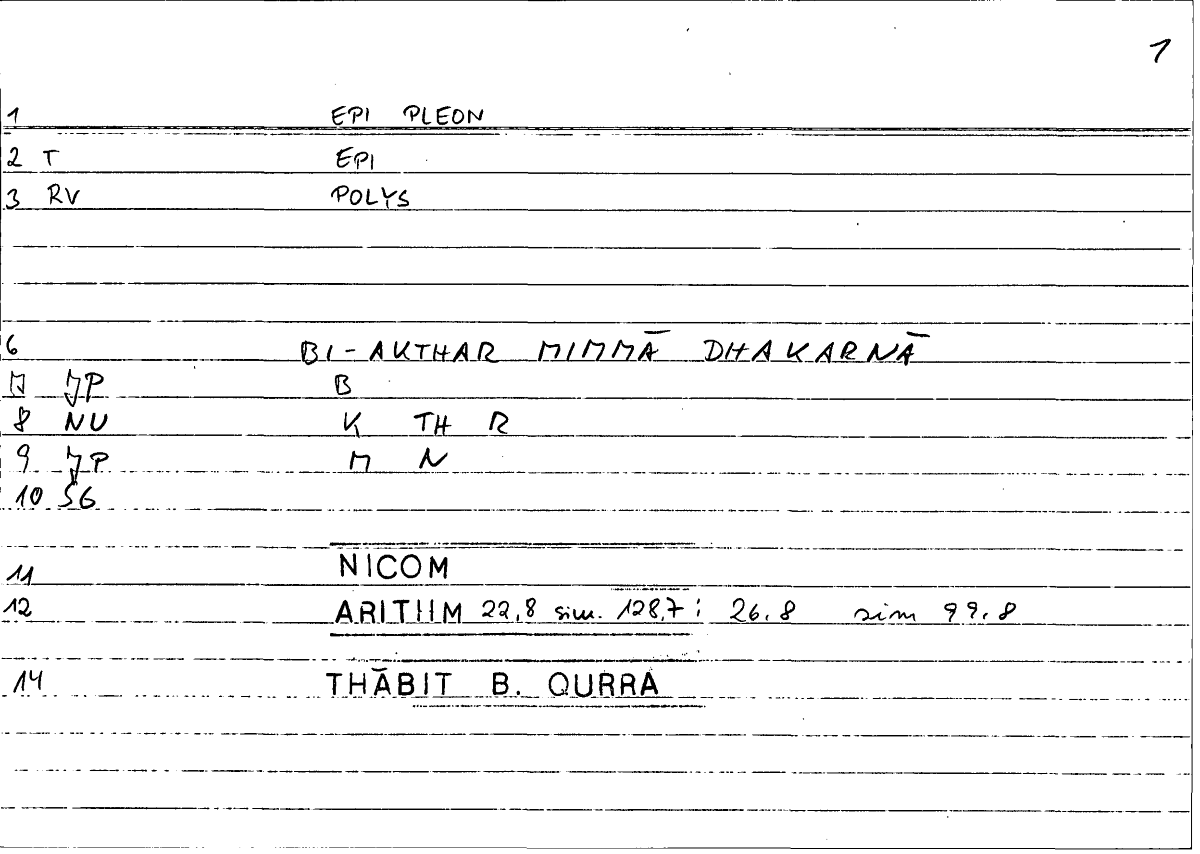 1
1 EPI PLEON
2 T EPI
3 RV POLYS
6 BI-AKTHAR MIMMĀ DHAKARNĀ
7 JP B
8 NU K TH R
9 JP M N
10 SG
11 NICOM
12 ARITHM 22,8 sim. 128,7; 26.8 sim 99.8
14 THĀBIT B. QURRA